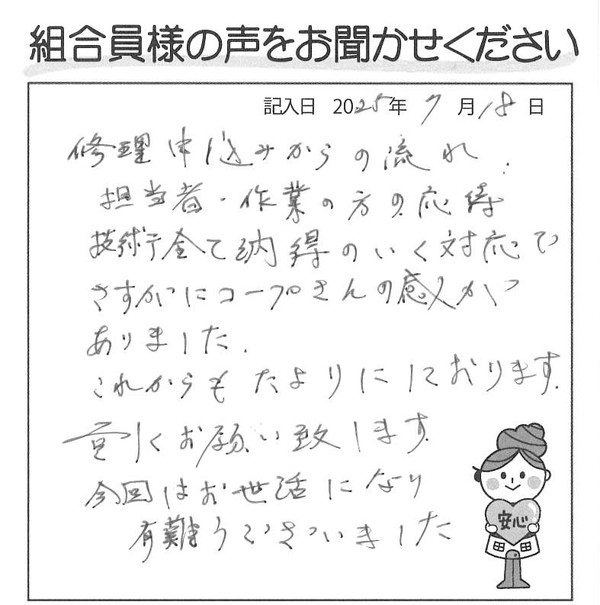 組合員様の声をお聞かせください
記入日 2025年 7月18日
修理申し込みからの流れ、
担当者・作業の方の応待
技術等全て納得のいく対応で
さすがにコープさんの感がか
ありました。
これからもたよりにしております。
宜しくお願い致します。
今回はお世話になり
有難うございました
安心